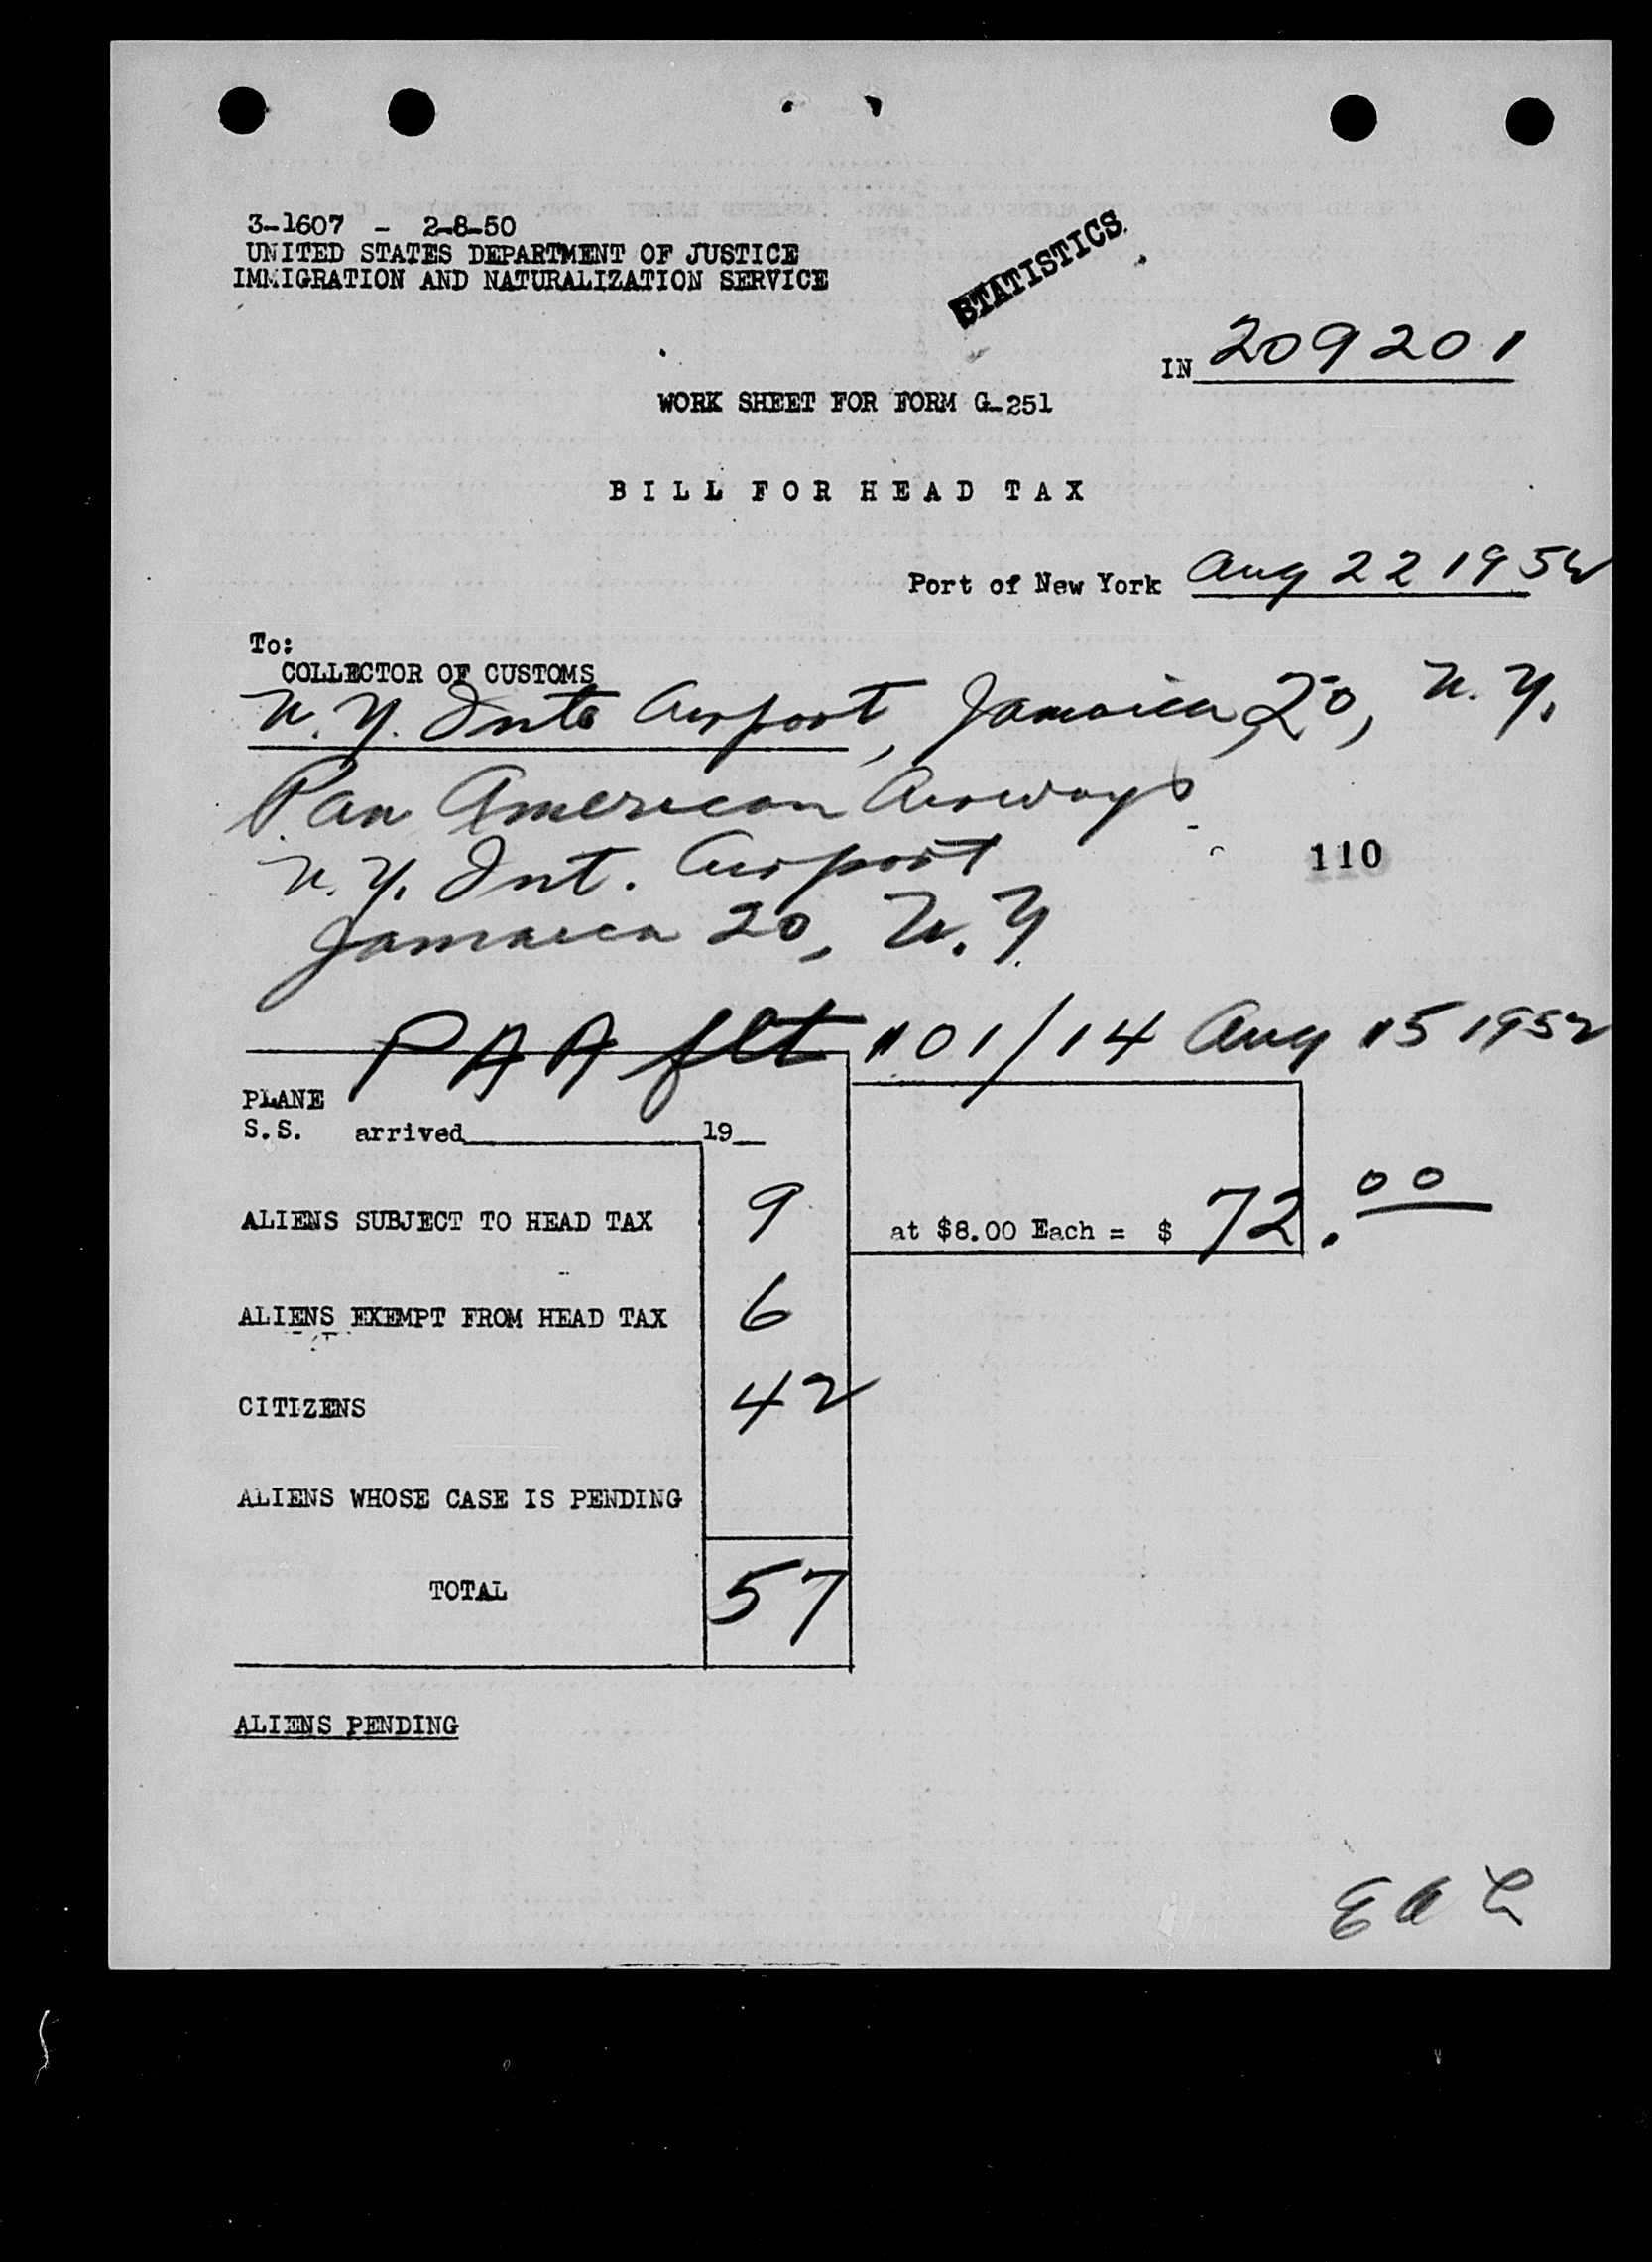 3-1607 - 2-8-50
UNITED STATES DEPARTMENT OF JUSTICE
IMMIGRATION AND NATURALIZATION SERVICE
STATISTICS
IN 209201
WORK SHEET FOR FORM G-251
BILL FOR HEAD TAX
Port of New York Aug 22 1952
To:
COLLECTOR OF CUSTOMS
N.Y. Int Airport, Jamaica 20, N.Y.
Pan American Airways
N.Y. Int. Airport
110
Jamaica 20, N.Y.
PAA flt 101/14 Aug 15 1952
PLANE
S.S. arrived 19
ALIENS SUBJECT TO HEAD TAX 9 at $8.00 Each = $ 72.00
ALIENS EXEMPT FROM HEAD TAX 6
CITIZENS 42
ALIENS WHOSE CASE IS PENDING
TOTAL 57
ALIENS PENDING